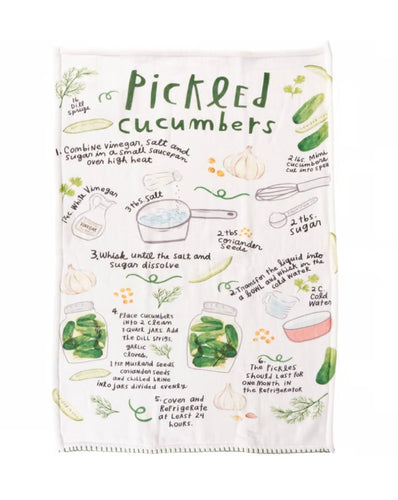 Pickled
cucumbers
16
Dill
Sprigs
1. Combine vinegar, salt and
sugar in a small saucepan
over high heat
2 lbs. Mini
cucumbers
cut into
1 c White Vinegar
VINEGAR
3 tbs. Salt
2 tbs.
coriander
seeds
2 tbs.
sugar
3. Whisk until the salt and
sugar dissolve
2. Transfer the liquid into
a bowl and whisk in the
cold water
2 C
Cold
Water
4.
Place cucumbers
into 2 clean
1 quart jars. Add
the dill sprigs,
garlic
cloves,
mustard seeds
coriander seeds
and chilled brine
into jars divided evenly.
5. cover and
Refrigerate
at least 24
hours.
6.
The Pickles
should last for
one month in
the refrigerator